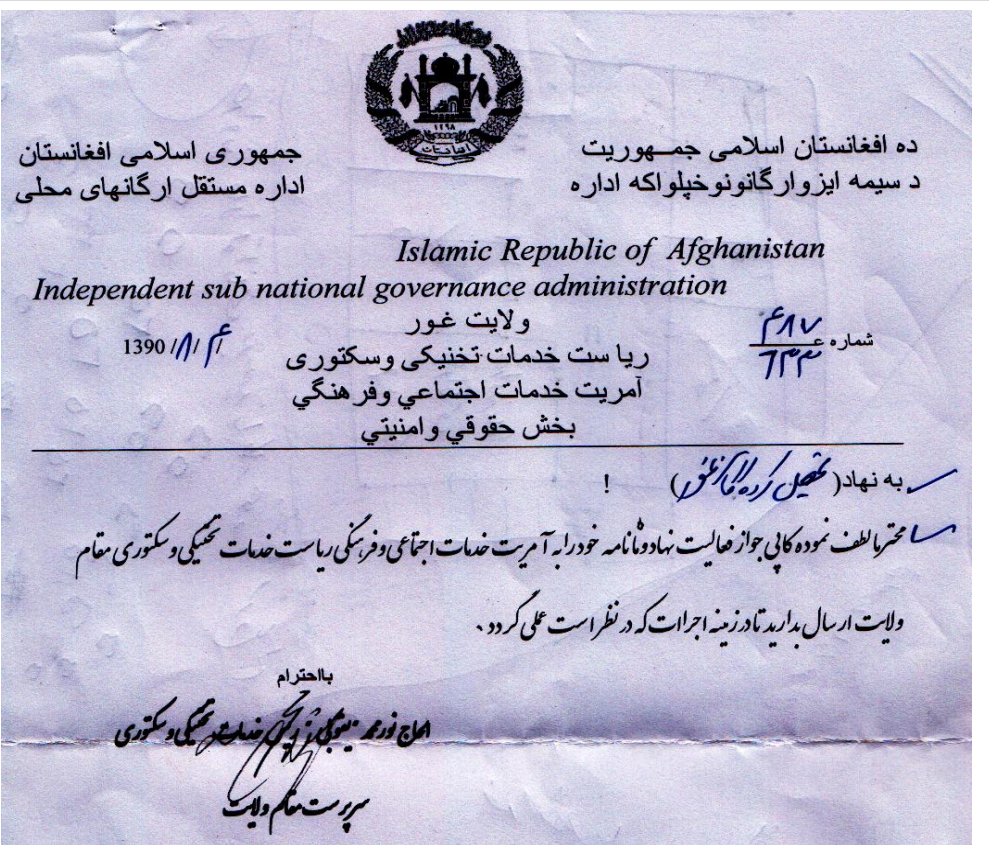 ۱۲۹۸
افغانستان
ده افغانستان اسلامی جمــهوریت
د سیمه ایزوارگانونوخپلواکه اداره
جمهوری اسلامی افغانستان
اداره مستقل ارگانهای محلی
Islamic Republic of Afghanistan
Independent sub national governance administration
ولایت غور
شماره ع ۴۸۷
۶۳۳
1390 /۸/ ۴
ریا ست خدمات تخنیکی وسکتوری
آمریت خدمات اجتماعي وفرهنگي
بخش حقوقي وامنیتي
به نهاد( تحصیل کرده غور) !
محترما لطف نموده کاپی جواز فعالیت نهاد خود را به آمریت خدمات اجتماعی وفرهنگی ریاست خدمات تخنیکی و سکتوری مقام
ولایت ارسال بدارید تا در زمینه اجراات که در نظر است عملی گردد .
بااحترام
الحاج نورمحمد خدمات تخنیکی و سکتوری
سرپرست مقام ولایت